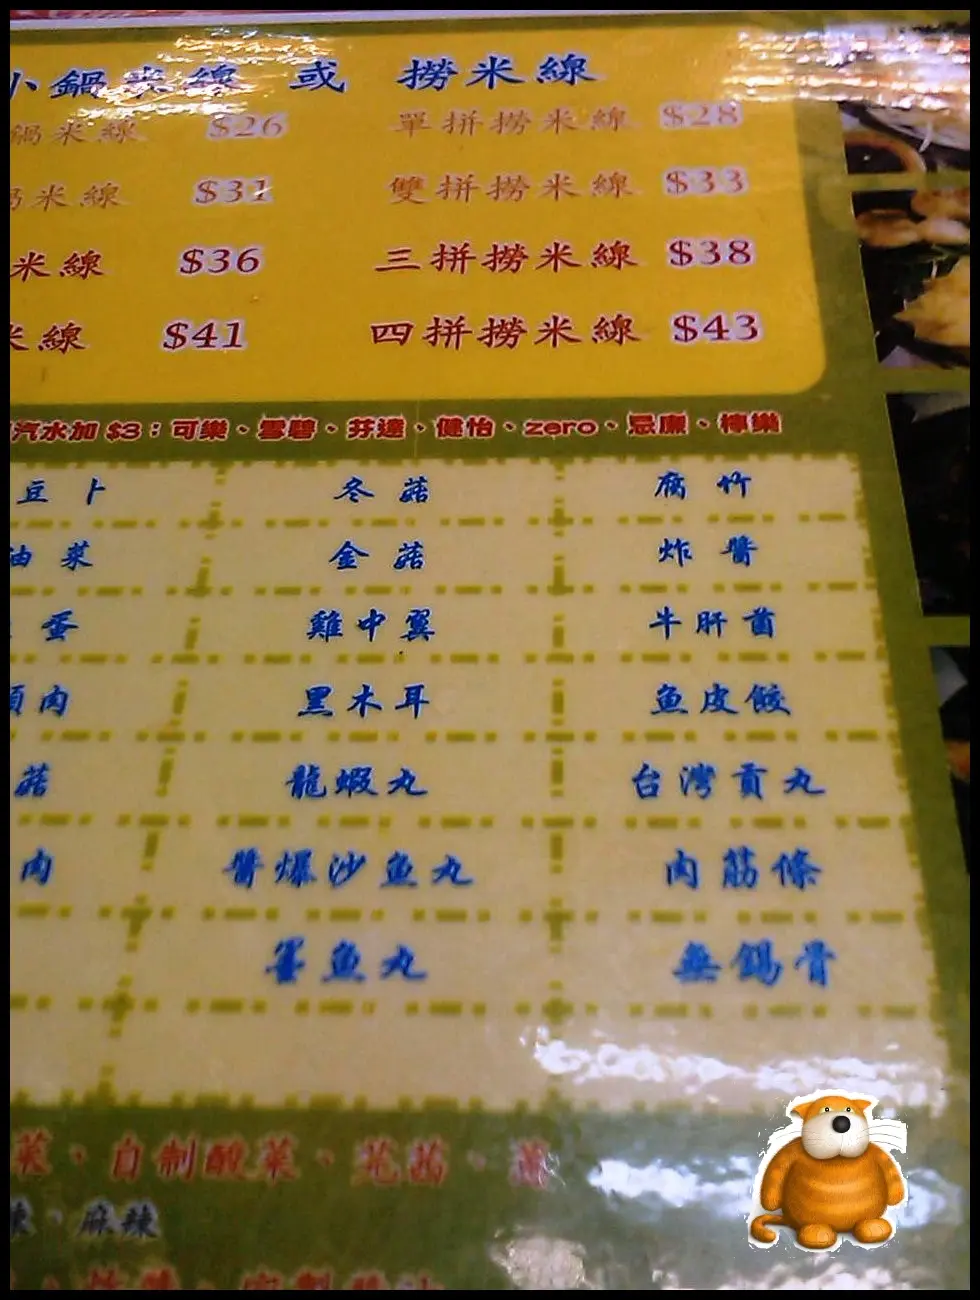 小鍋米線 或 撈米線
鍋米線 $26 單拼撈米線 $28
米線 $31 雙拼撈米線 $33
米線 $36 三拼撈米線 $38
米線 $41 四拼撈米線 $43
汽水加 $3：可樂、雪碧、芬達、健怡、zero、忌廉、檸樂
豆卜 冬菇 腐竹
油菜 金菇 炸醬
蛋 雞中翼 牛肝菌
肉 黑木耳 魚皮餃
菇 龍蝦丸 台灣貢丸
肉 醬爆沙魚丸 肉筋條
墨魚丸 無錫骨
菜、自制酸菜、芫茜、蔥
辣、麻辣